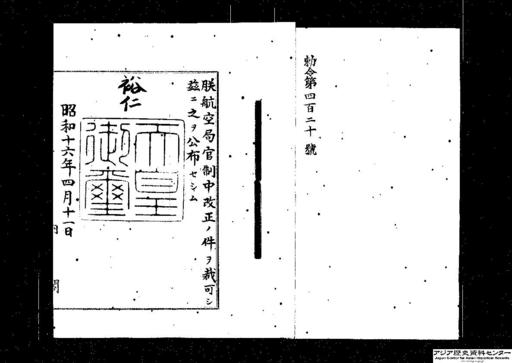 勅令第四百二十號
朕航空局官制中改正ノ件ヲ裁可シ
茲ニ之ヲ公布セシム
裕仁
天皇御璽
昭和十六年四月十一日
アジア歴史資料センター
Japan Center for Asian Historical Records